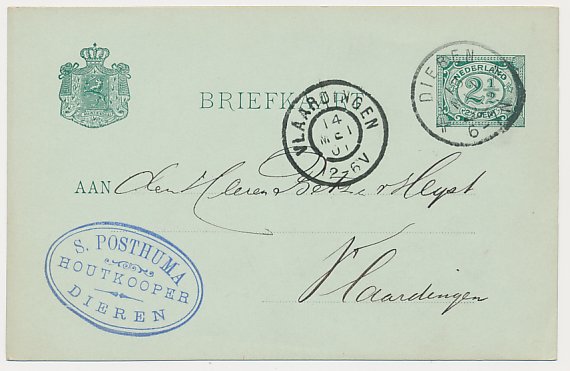 BRIEFKAART
NEDERLAND
2½
CENT
DIEREN
VLAARDINGEN
14
MEI
01
12-6V
AAN den Heeren Betz & v Heyst
Vlaardingen
S. POSTHUMA
HOUTKOOPER
DIEREN